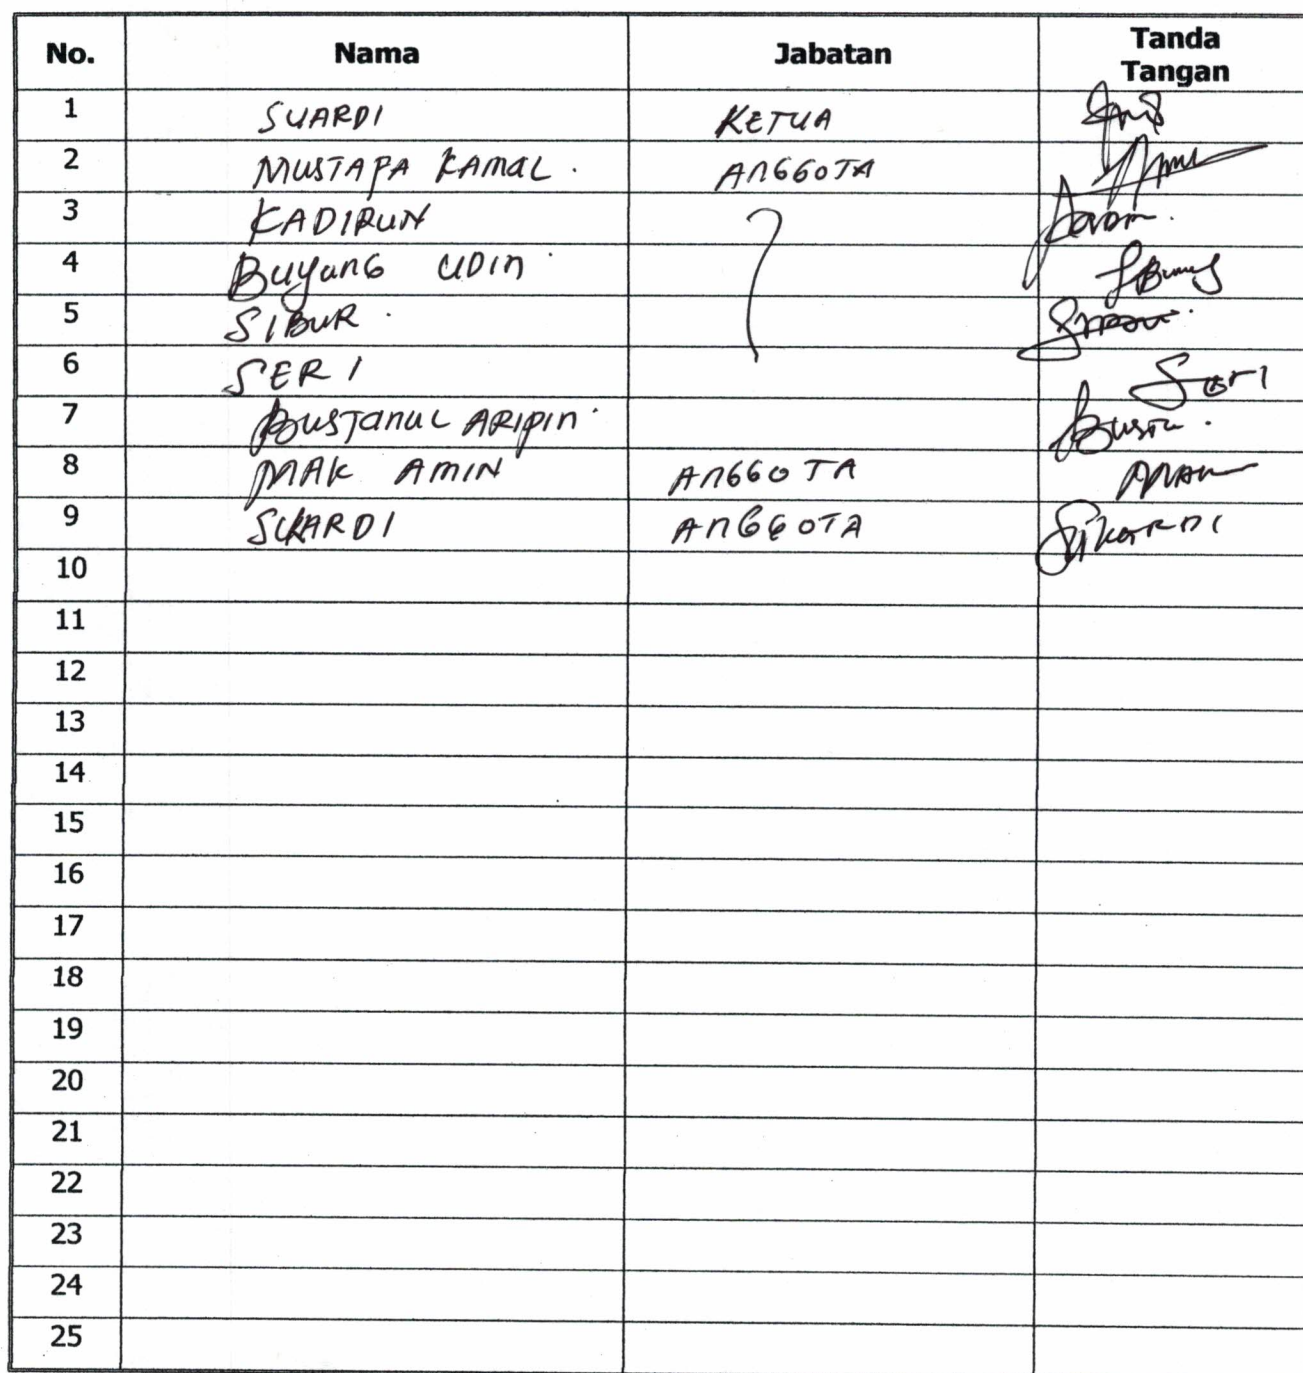 No. Nama Jabatan Tanda Tangan
1 SUARDI KETUA
2 MUSTAPA KAMAL . ANGGOTA
3 KADIRUN
4 BUYUNG UDIN .
5 SIBUR .
6 SERI Seri
7 BUSTANUL ARIPIN .
8 MAK AMIN ANGGOTA
9 SUKARDI ANGGOTA
10
11
12
13
14
15
16
17
18
19
20
21
22
23
24
25